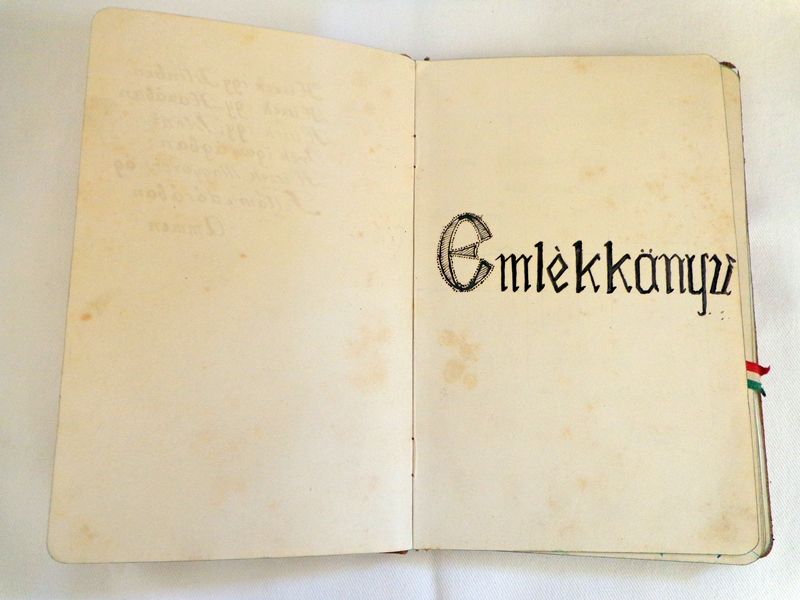 Hiszek egy Istenben
Hiszek egy Hazában
Hiszek egy Isteni
örök igazságban
Hiszek Magyarország
Feltámadásában
Ammen
Emlèkkänyv